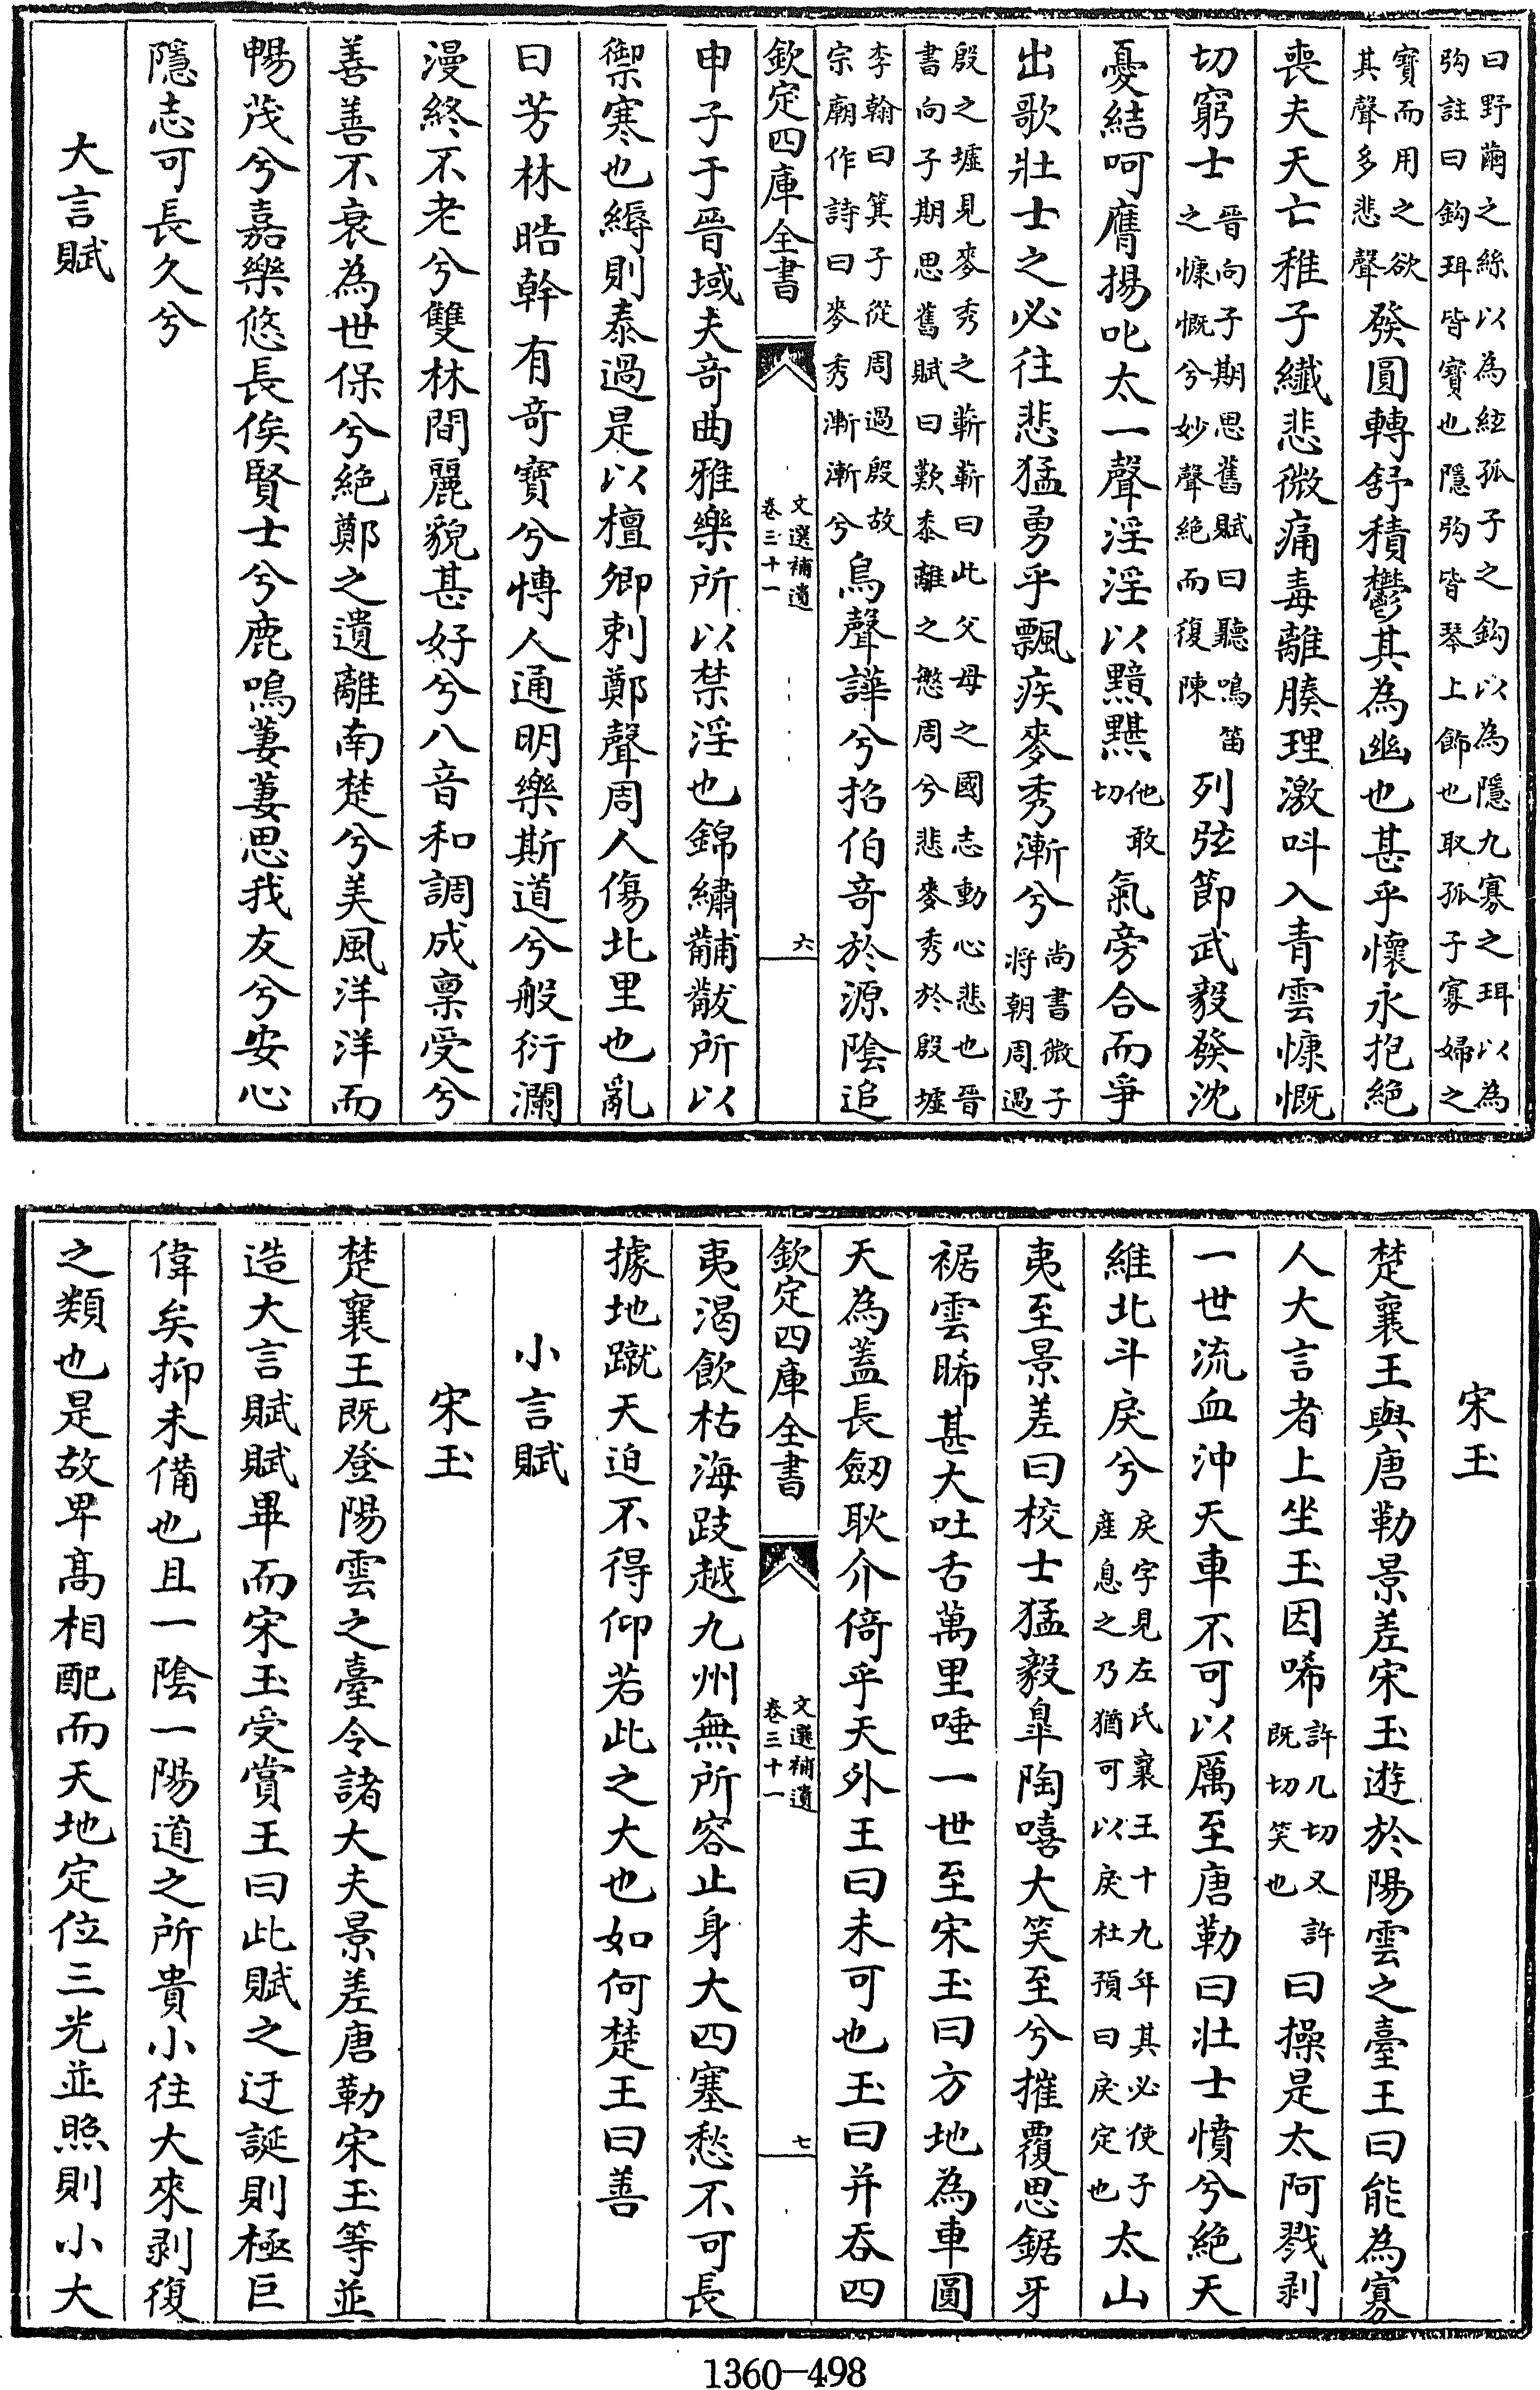 曰野繭之絲以為絃孤子之鈎以為隱九寡之珥以為
註曰鈎珥皆寶也隱皆琴上飾也取孤子寡婦之
寶而用之欲
其聲多悲聲
發圓轉舒積鬱其為幽也甚乎懷永抱絕
喪夫天亡稚子纎悲微痛毒離腠理激呌入青雲慷慨
切窮士
晉向子期思舊賦曰聽鳴笛
之慷慨兮妙聲絕而復陳
列弦節武毅發沈
憂結呵膺揚叱太一聲淫淫以黯黮
他敢
切
氣旁合而爭
出歌壯士之必往悲猛勇乎飄疾麥秀漸兮
尚書微子
將朝周過
殷之墟見麥秀之蔪蔪曰此父母之國志動心悲也晉
書向子期思舊賦曰歎黍離之愍周兮悲麥秀於殷墟
李翰曰箕子從周過殷故
宗廟作詩曰麥秀漸漸兮
鳥聲譁兮招伯奇於源陰追
欽定四庫全書
文選補遺
卷三十一
六
申子于晉域夫奇曲雅樂所以禁淫也錦繡黼黻所以
禦寒也縟則泰過是以檀卿刺鄭聲周人傷北里也亂
曰芳林皓幹有奇寶兮慱人通明樂斯道兮般衍瀾
漫終不老兮雙林間麗貌甚好兮八音和調成稟受兮
善善不衰為世保兮絕鄭之遺離南楚兮美風洋洋而
暢茂兮嘉樂悠長俟賢士兮鹿鳴萋萋思我友兮安心
隱志可長久兮
大言賦
宋玉
楚襄王與唐勒景差宋玉遊於陽雲之臺王曰能為寡
人大言者上坐王因唏
許几切又許
既切笑也
曰操是太阿戮剥
一世流血沖天車不可以厲至唐勒曰壯士憤兮絕天
維北斗戾兮
戾字見左氏襄王十九年其必使子
產息之乃猶可以戾杜預曰戾定也
太山
夷至景差曰校士猛毅臯陶嘻大笑至兮摧覆思鋸牙
裾雲晞甚大吐舌萬里唾一世至宋玉曰方地為車圓
天為蓋長劒耿介倚乎天外王曰未可也玉曰并吞四
欽定四庫全書
文選補遺
卷三十一
七
夷渴飲枯海跂越九州無所容止身大四塞愁不可長
據地蹴天迫不得仰若此之大也如何楚王曰善
小言賦
宋玉
楚襄王既登陽雲之臺令諸大夫景差唐勒宋玉等並
造大言賦賦畢而宋玉受賞王曰此賦之迂誕則極巨
偉矣抑未備也且一陰一陽道之所貴小往大來剥復
之類也是故卑髙相配而天地定位三光並照則小大
1360-498